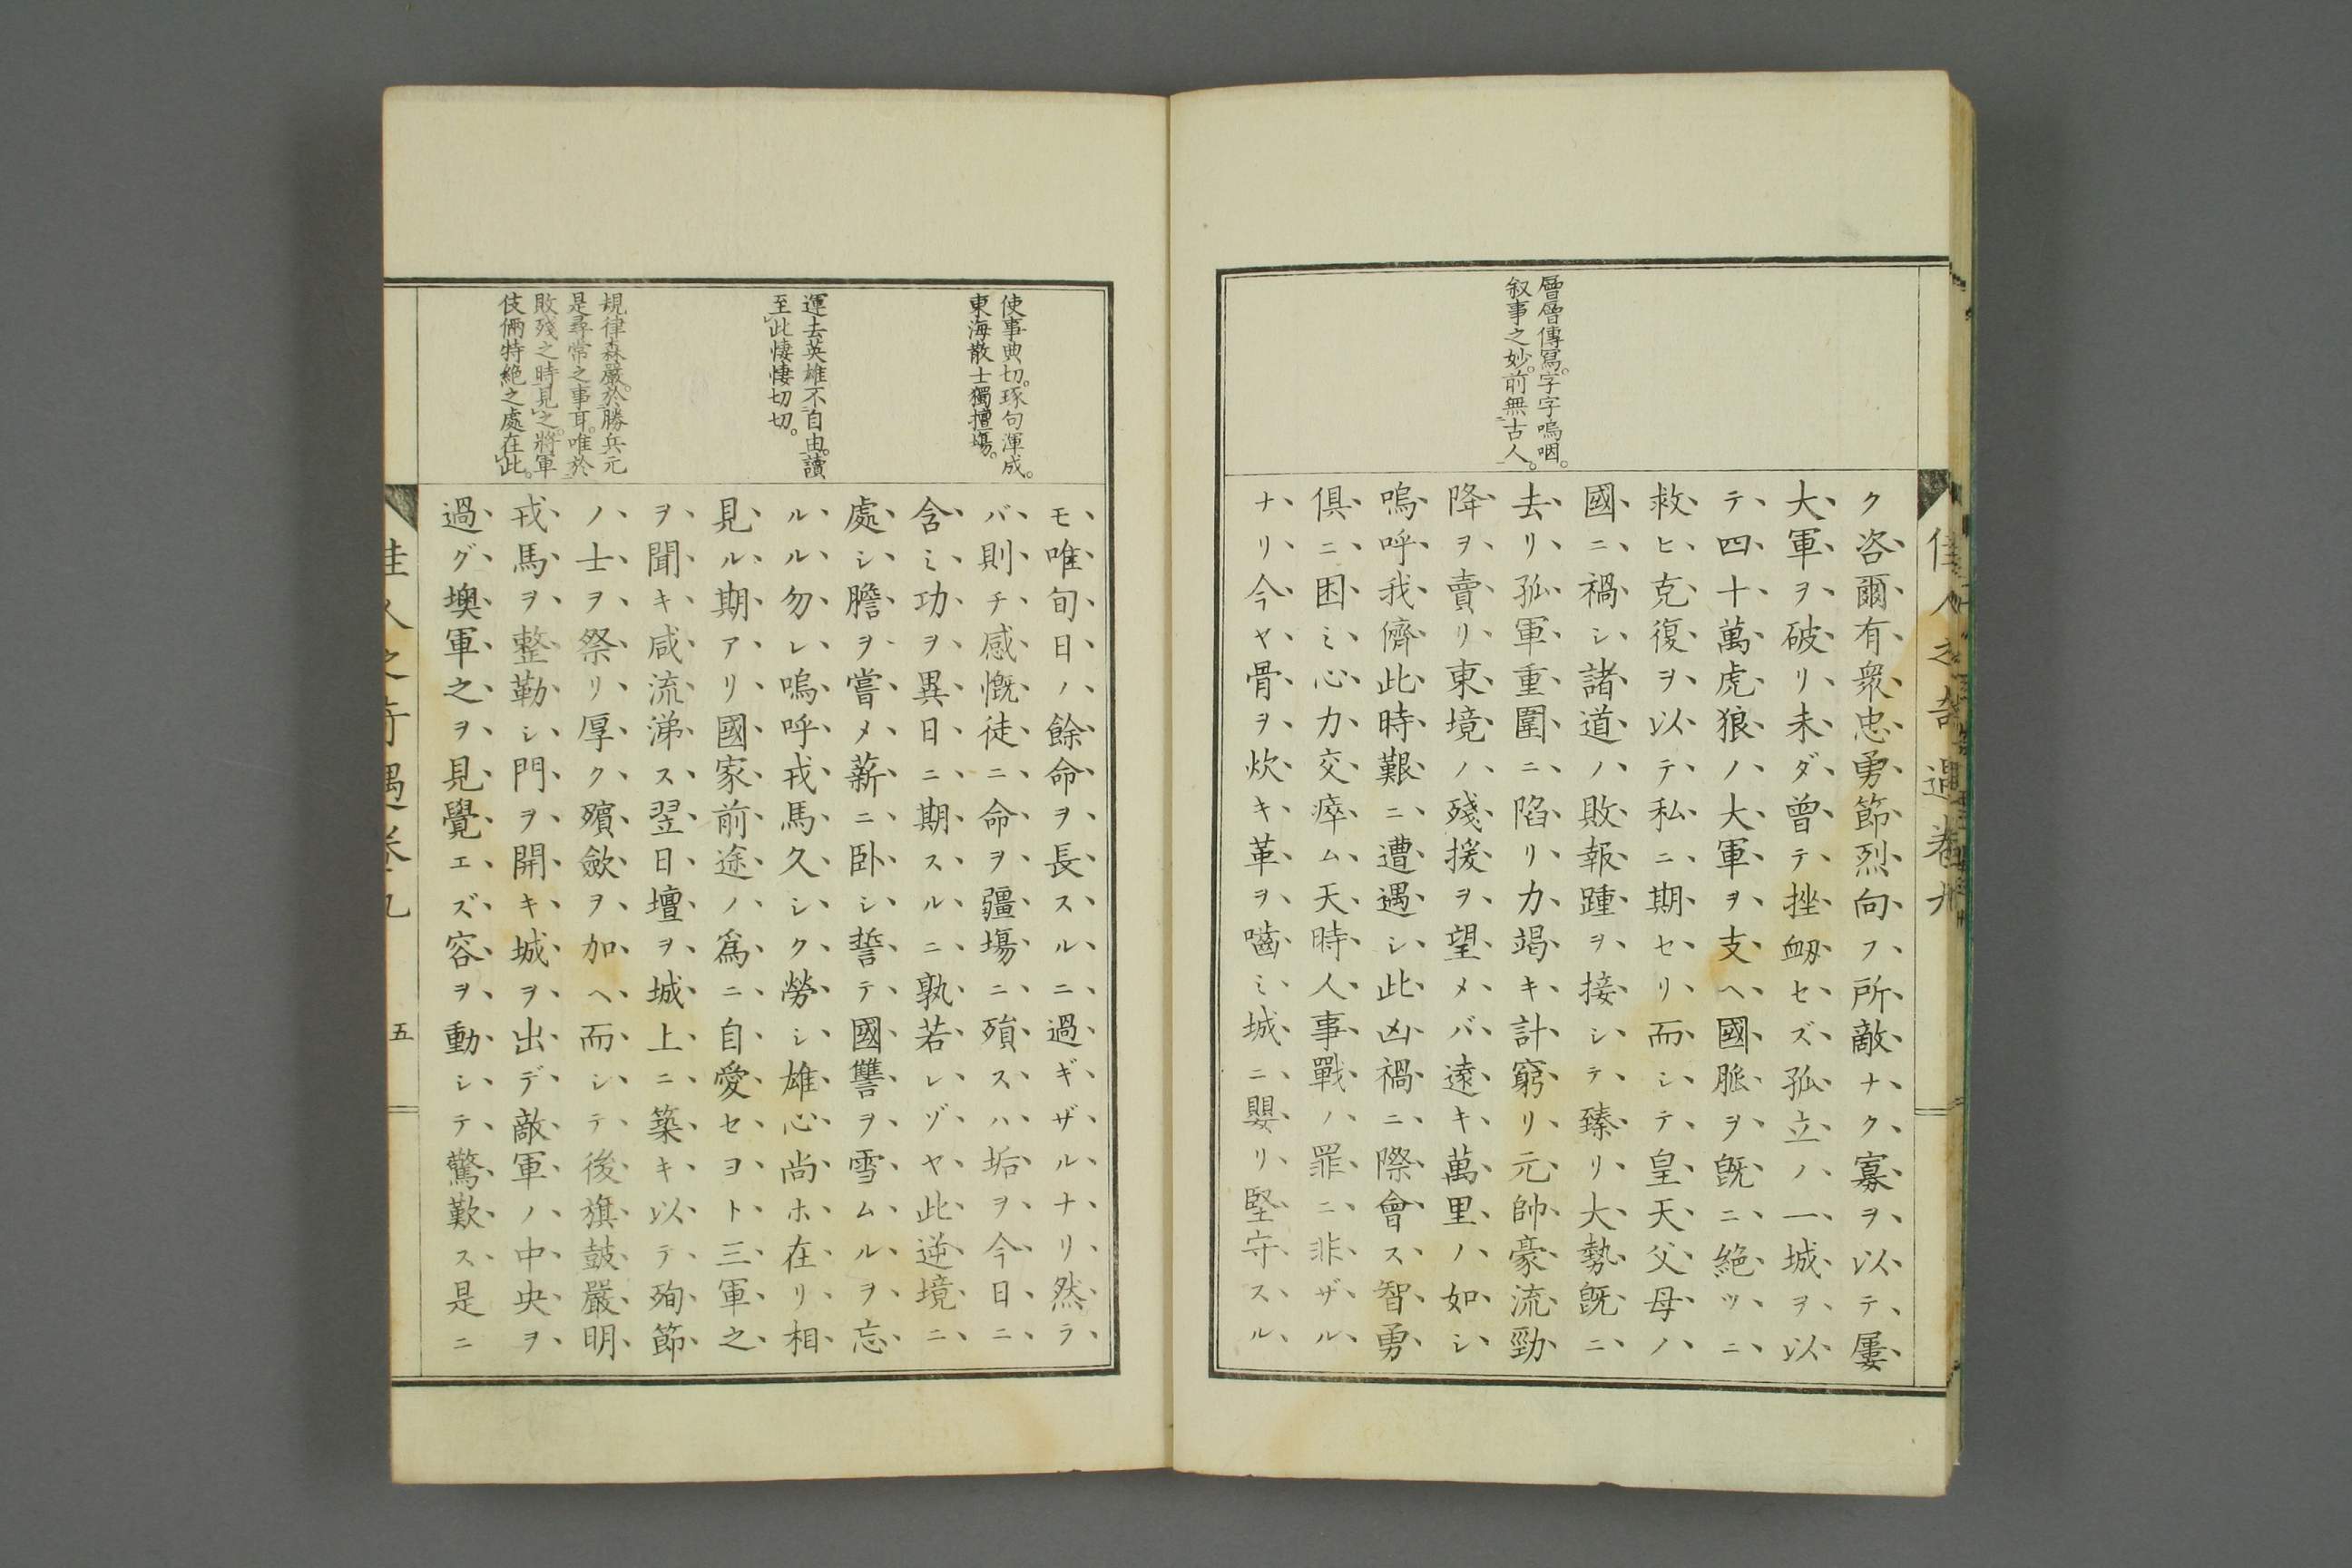 佳人之奇遇卷九
層層傳寫。字字嗚咽。
叙事之妙。前無古人。
ク咨爾有衆忠勇節烈向フ所敵ナク寡ヲ以テ屢
大軍ヲ破リ未ダ曾テ挫衂セズ孤立ノ一城ヲ以
テ四十萬虎狼ノ大軍ヲ支ヘ國脈ヲ旣ニ絶ツニ
救ヒ克復ヲ以テ私ニ期セリ而シテ皇天父母ノ
國ニ禍シ諸道ノ敗報踵ヲ接シテ臻リ大勢旣ニ
去リ孤軍重圍ニ陷リ力竭キ計窮リ元帥豪流勁
降ヲ賣リ東境ノ殘援ヲ望メバ遠キ萬里ノ如シ
嗚呼我儕此時艱ニ遭遇シ此凶禍ニ際會ス智勇
俱ニ困ミ心力交瘁ム天時人事戰ノ罪ニ非ザル
ナリ今ヤ骨ヲ炊キ革ヲ嚙ミ城ニ嬰リ堅守スル
使事典切。琢句渾成。
東海散士獨擅塲。
運去英雄不自由。讀
至此悽悽切切。
規律森嚴。於勝兵元
是尋常之事耳。唯於
敗殘之時見之。將軍
伎倆特絶之處在此。
モ唯旬日ノ餘命ヲ長スルニ過ギザルナリ然ラ
バ則チ感慨徒ニ命ヲ疆塲ニ殞スハ垢ヲ今日ニ
含ミ功ヲ異日ニ期スルニ孰若レゾヤ此逆境ニ
處シ膽ヲ嘗メ薪ニ卧シ誓テ國讐ヲ雪ムルヲ忘
ルル勿レ嗚呼戎馬久シク勞シ雄心尚ホ在リ相
見ル期アリ國家前途ノ爲ニ自愛セヨト三軍之
ヲ聞キ咸流涕ス翌日壇ヲ城上ニ築キ以テ殉節
ノ士ヲ祭リ厚ク殯斂ヲ加ヘ而シテ後旗鼓嚴明
戎馬ヲ整勒シ門ヲ開キ城ヲ出デ敵軍ノ中央ヲ
過グ墺軍之ヲ見覺エズ容ヲ動シテ驚歎ス是ニ
佳人之奇遇卷九
五